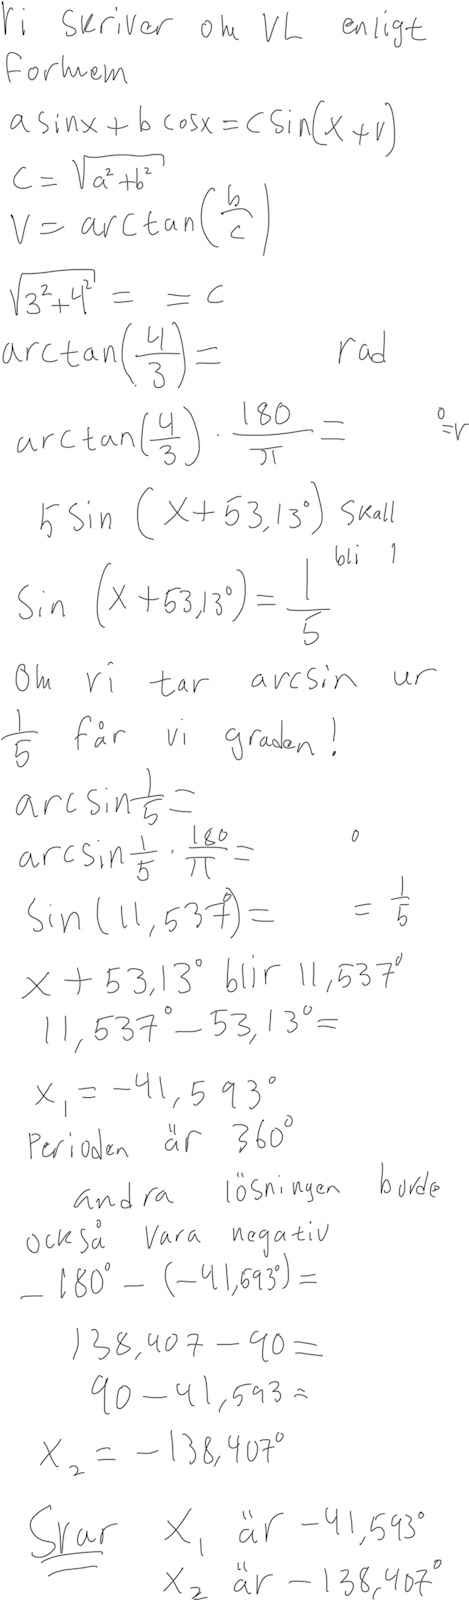 Vi skriver om VL enligt
formeln
a sinx + b cosx = c sin(x + v)
c = √(a² + b²)
v = arctan(b/c)
√(3² + 4²) = = c
arctan(4/3) = rad
arctan(4/3) · 180/π = ° = v
5 sin (x + 53,13°) skall
bli 1
sin (x + 53,13°) = 1/5
Om vi tar arcsin ur
1/5 får vi graden!
arcsin 1/5 =
arcsin 1/5 · 180/π = °
sin(11,537°) = = 1/5
x + 53,13° blir 11,537°
11,537° - 53,13° =
x₁ = -41,593°
Perioden är 360°
andra lösningen borde
också vara negativ
-180° - (-41,593°) =
138,407 - 90 =
90 - 41,593 =
x₂ = -138,407°
Svar x₁ är -41,593°
x₂ är -138,407°